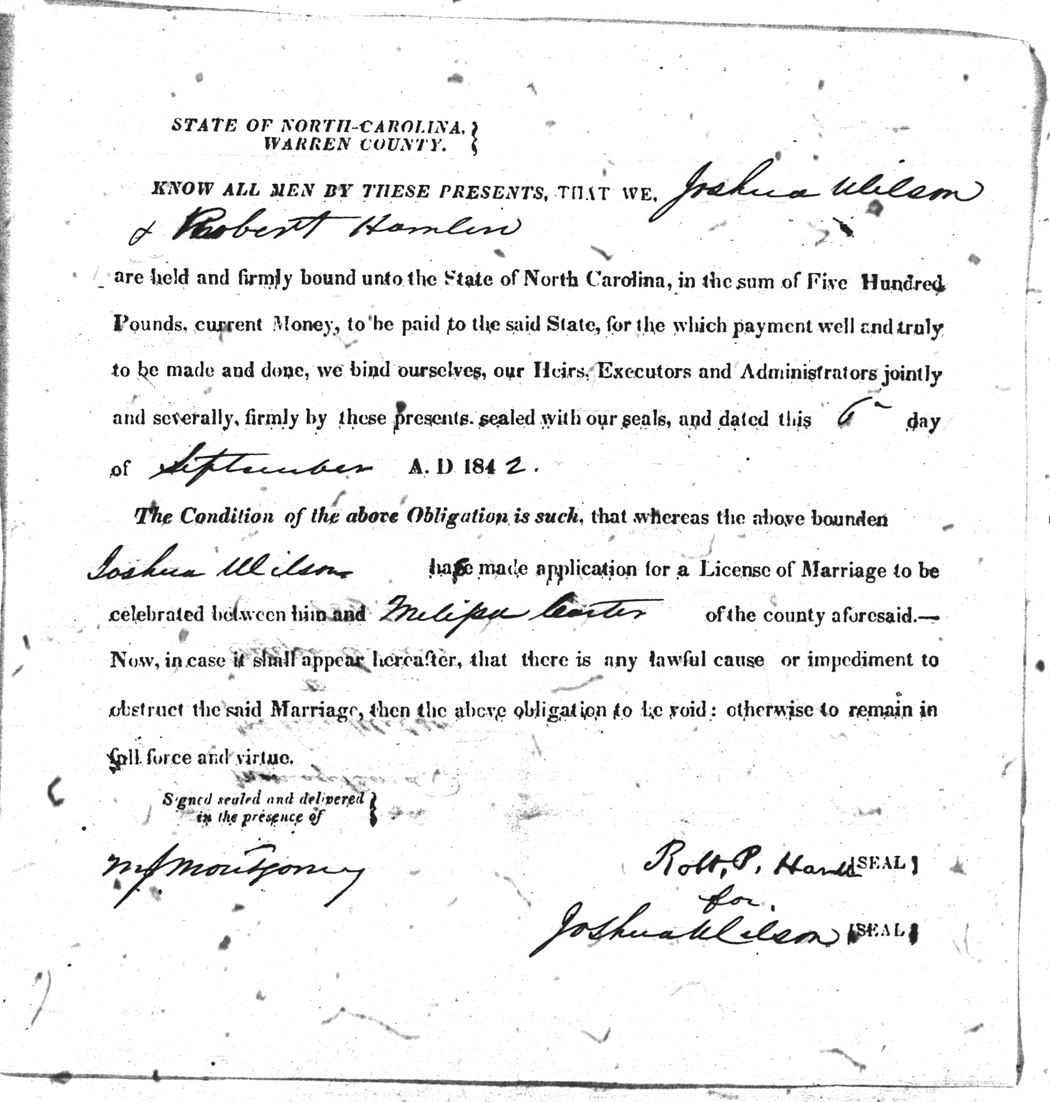 STATE OF NORTH-CAROLINA,
WARREN COUNTY.
KNOW ALL MEN BY THESE PRESENTS, THAT WE, Joshua Wilson
& Robert Hamlin
are held and firmly bound unto the State of North Carolina, in the sum of Five Hundred
Pounds, current Money, to be paid to the said State, for the which payment well and truly
to be made and done, we bind ourselves, our Heirs, Executors and Administrators jointly
and severally, firmly by these presents. sealed with our seals, and dated this 6th day
of September A. D 1842.
The Condition of the above Obligation is such, that whereas the above bounden
Joshua Wilson has made application for a License of Marriage to be
celebrated between him and Melissa Carter of the county aforesaid.—
Now, in case it shall appear hereafter, that there is any lawful cause or impediment to
obstruct the said Marriage, then the above obligation to be void: otherwise to remain in
full force and virtue.
Signed sealed and delivered
in the presence of
M J Montgomery
Robt. P. [SEAL]
for
Joshua Wilson [SEAL]